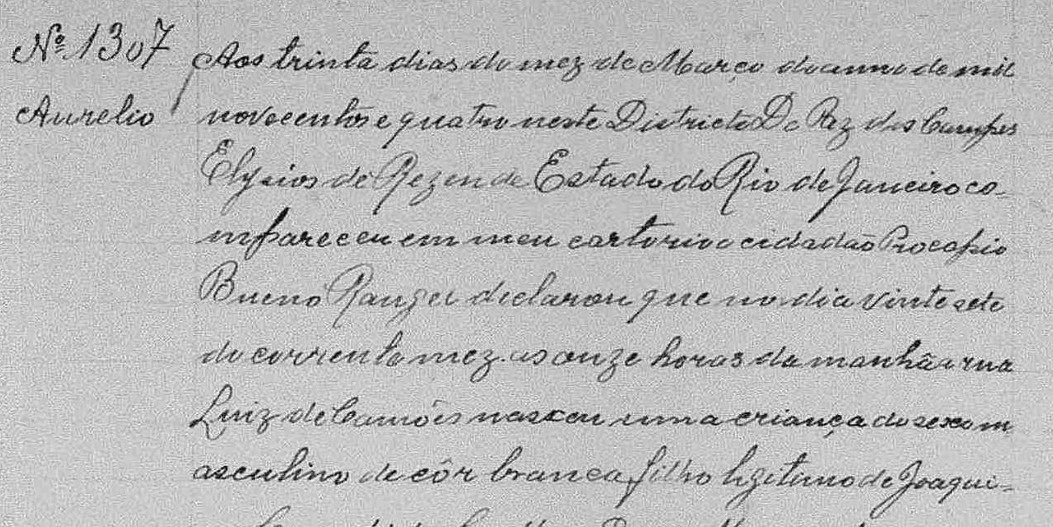 Nº 1307
Aurelio
Aos trinta dias do mez de Março do anno de mil
novecentos e quatro neste Districto De Paz dos Campos
Elysios de Rezende Estado do Rio de Janeiro co-
mpareceu em meu cartorio o cidadão Procopio
Bueno Rangel declarou que no dia vinte sete
do corrente mez as onze horas da manhã a rua
Luiz de Camões nasceu uma criança do sexo m
asculino de côr branca filho legitimo de Joaqui-